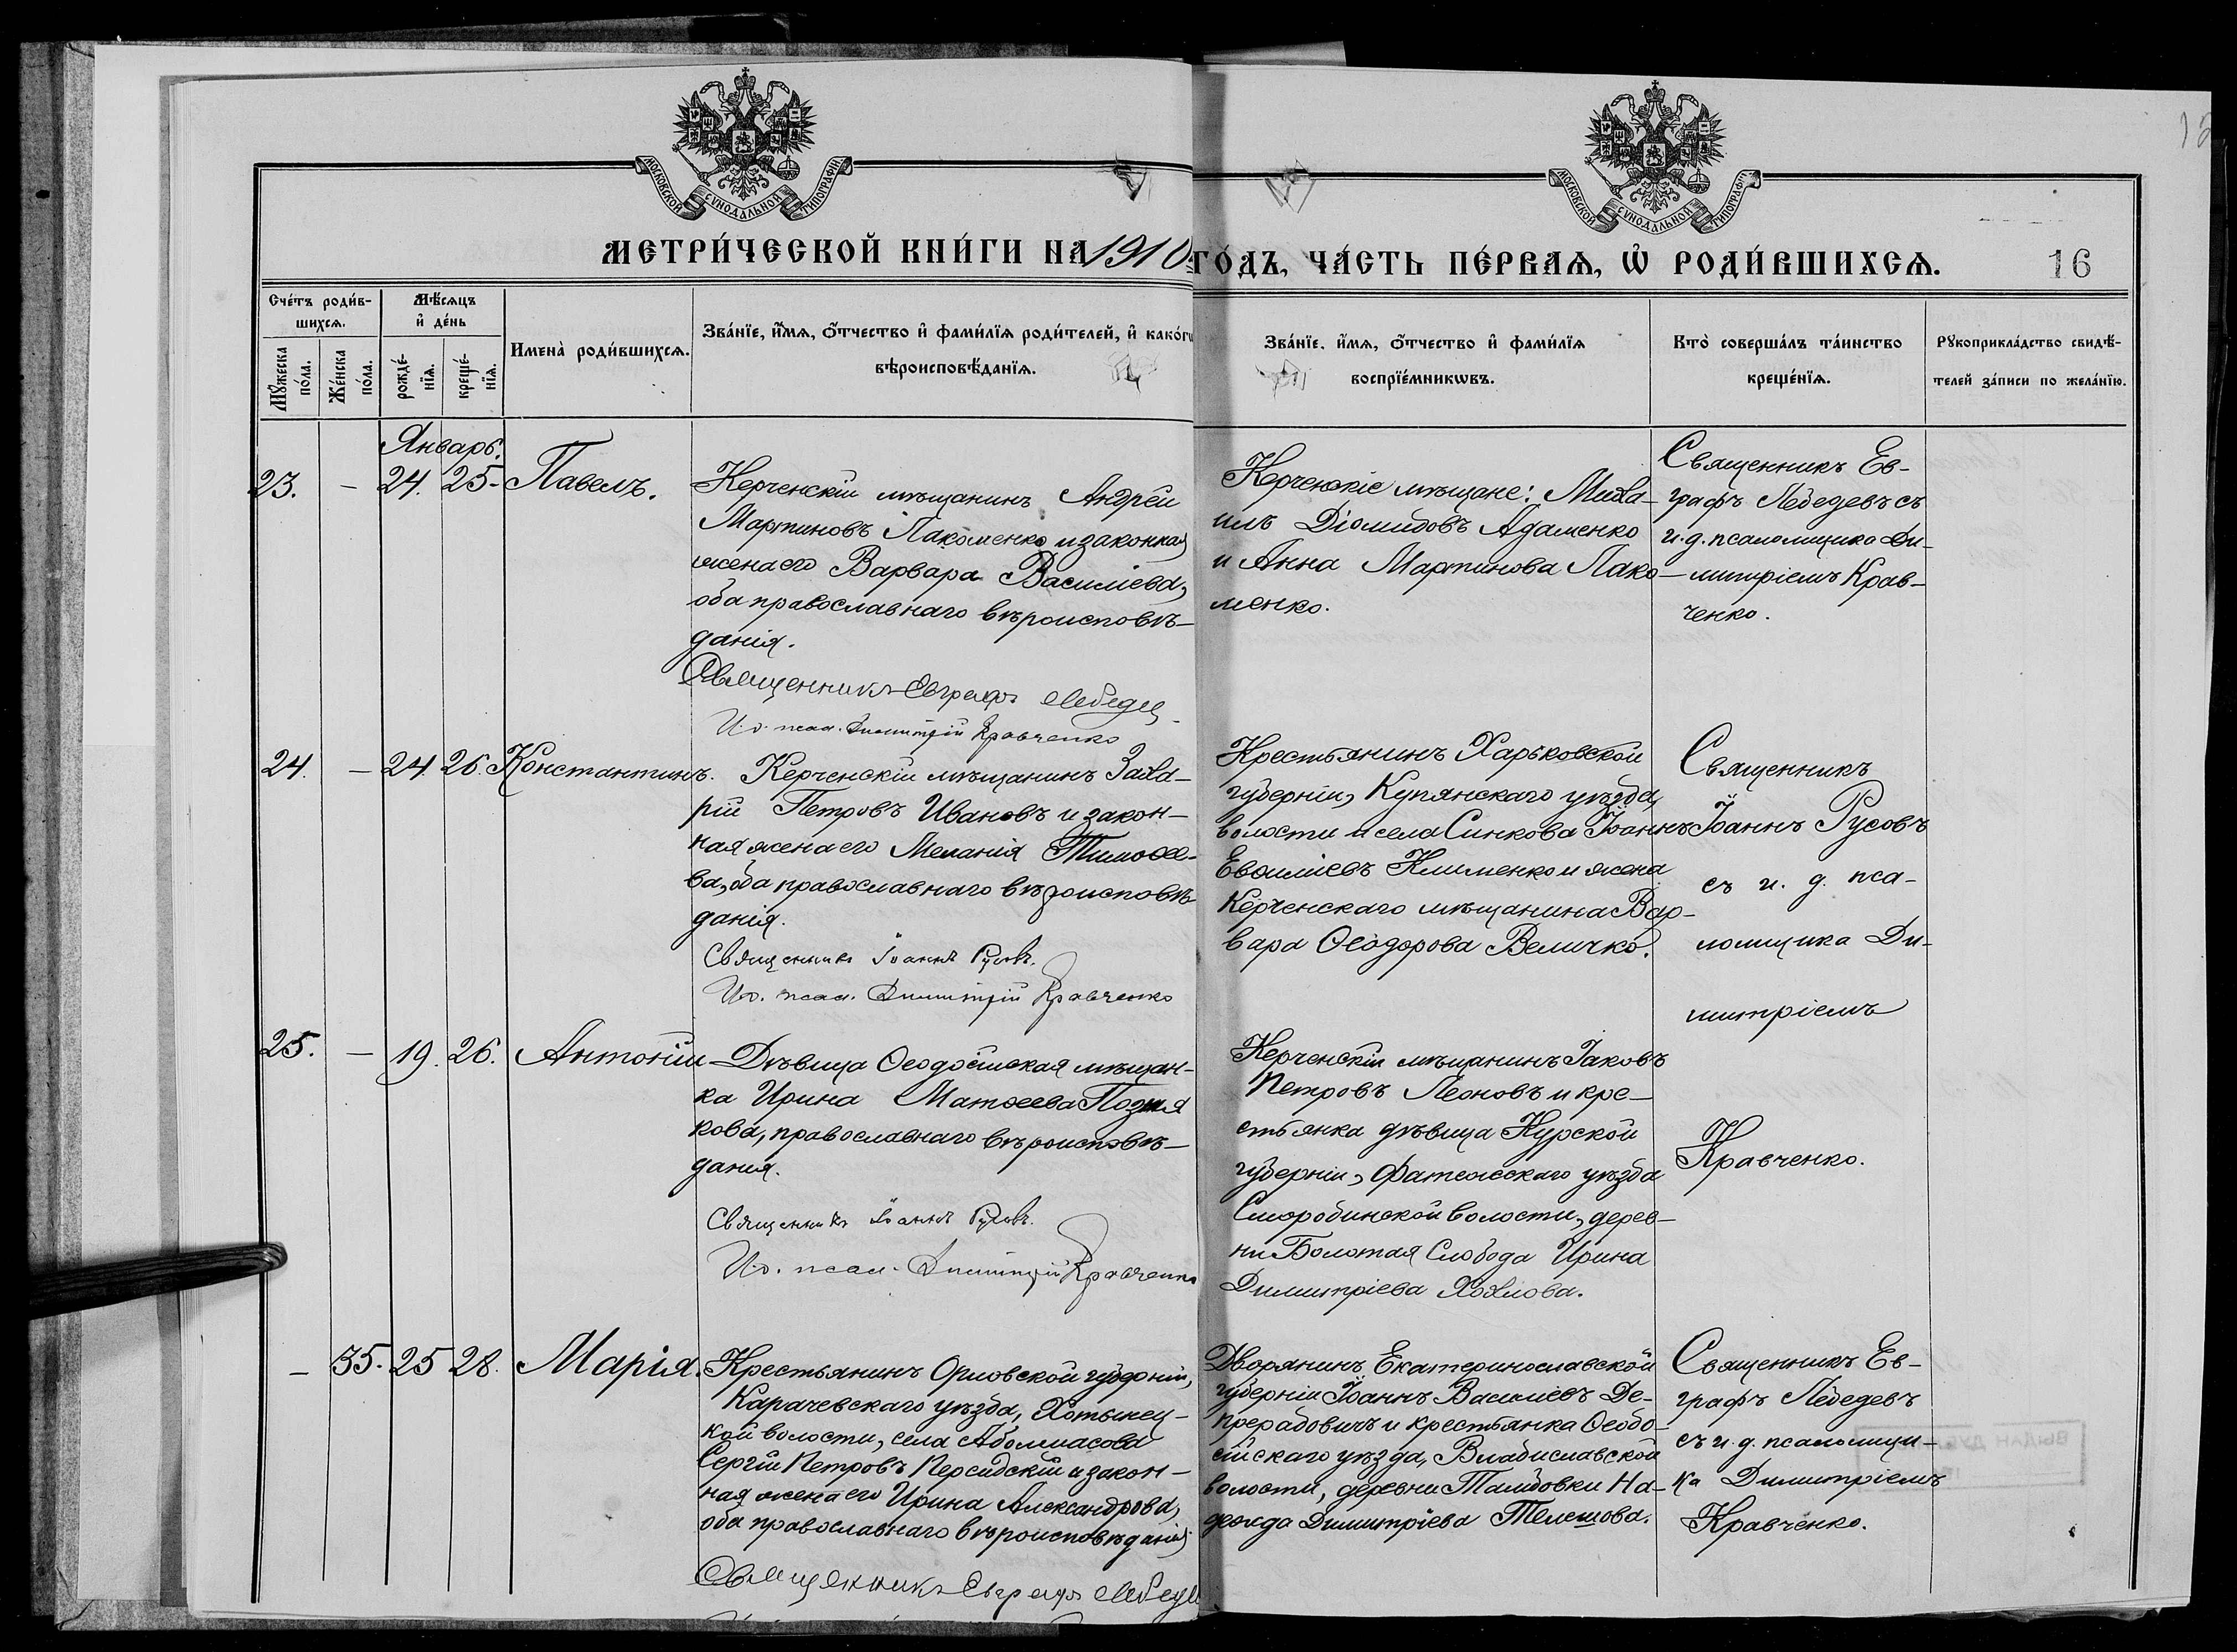 МОСКОВСКОЙ СѴНОДАЛЬНОЙ ТИПОГРАФІИ
МОСКОВСКОЙ СѴНОДАЛЬНОЙ ТИПОГРАФІИ
МЕТРИ́ЧЕСКОЙ КНИ́ГИ НА 1910 ГО́ДЪ, ЧА́СТЬ ПЕ́РВАѦ, Ѡ҆ РОДИ́ВШИХСѦ.
16
Сче́тъ роди́в-
шихсѧ.
Мꙋ́жеска по́ла.
Же́нска по́ла.
Мѣ́сѧцъ
и҆ де́нь
рожде́-
нїѧ.
креще́-
нїѧ.
Имена̀ роди́вшихсѧ.
Зва́нїе, и҆́мѧ, ѻ҆́тчество и҆ фами́лїѧ роди́телей, и҆ како́гѡ
вѣроисповѣ́данїѧ.
Зва́нїе, и҆́мѧ, ѻ҆́тчество и҆ фами́лїѧ
воспрїе́мникѡвъ.
Кто̀ соверша́лъ та́инство
креще́нїѧ.
Рꙋкоприкла́дство свидѣ́-
телей за́писи по жела́нїю.
Январь.
23. — 24. 25. Павелъ.
Керченскій мѣщанинъ Андрей
Мартиновъ Лакоменко и законная
жена его Варвара Василіева,
оба православнаго вѣроисповѣ-
данія.
Священникъ Евграфъ Лебедев
И.д. псал. Димитрій Кравченко
Керченскіе мѣщане: Миха-
илъ Діомидовъ Адаменко
и Анна Мартинова Лако-
менко.
Священникъ Ев-
графъ Лебедевъ съ
и.д. псаломщика Ди-
митріемъ Крав-
ченко.
24. — 24. 26. Константинъ.
Керченскій мѣщанинъ Заха-
рій Петровъ Ивановъ и закон-
ная жена его Меланія Тимоѳее-
ва, оба православнаго вѣроисповѣ-
данія.
Священникъ Іоаннъ Русовъ.
И.д. псал. Димитрій Кравченко
Крестьянинъ Харьковской
губерніи, Купянскаго уѣзда,
волости и села Синкова Іоаннъ
Евѳиміевъ Клименко и жена
Керченскаго мѣщанина Вар-
вара Ѳеодорова Величко.
Священникъ
Іоаннъ Русовъ
съ и. д. пса-
ломщика Ди-
митріемъ
Кравченко.
25. — 19. 26. Антоній
Дѣвица Ѳеодосійская мѣщан-
ка Ирина Матѳеева Позня
кова, православнаго вѣроисповѣ-
данія.
Священникъ Іоаннъ Русовъ.
И.д. псал. Димитрій Кравченко
Керченскій мѣщанинъ Іаковъ
Петровъ Леоновъ и кре-
стьянка дѣвица Курской
губерніи, Фатежскаго уѣзда
Смородинской волости, дерев-
ни Болотая Слобода Ирина
Димитріева Хохлова.
— 35. 25 28. Марія.
Крестьянинъ Орловской губерніи,
Карачевскаго уѣзда, Хотынец-
кой волости, села Аболмасова
Сергій Петровъ Персидскій и закон-
ная жена его Ирина Александрова,
оба православнаго вѣроисповѣданія
Священникъ Евграфъ Лебедев
Дворянинъ Екатеринославской
губерніи Іоаннъ Василіевъ Де-
прерадовичъ и крестьянка Ѳеодо-
сійскаго уѣзда, Владиславской
волости, деревни Тамбовки На-
дежда Димитріева Телешова.
Священникъ Ев-
графъ Лебедевъ
съ и.д. псаломщи-
ка Димитріемъ
Кравченко.